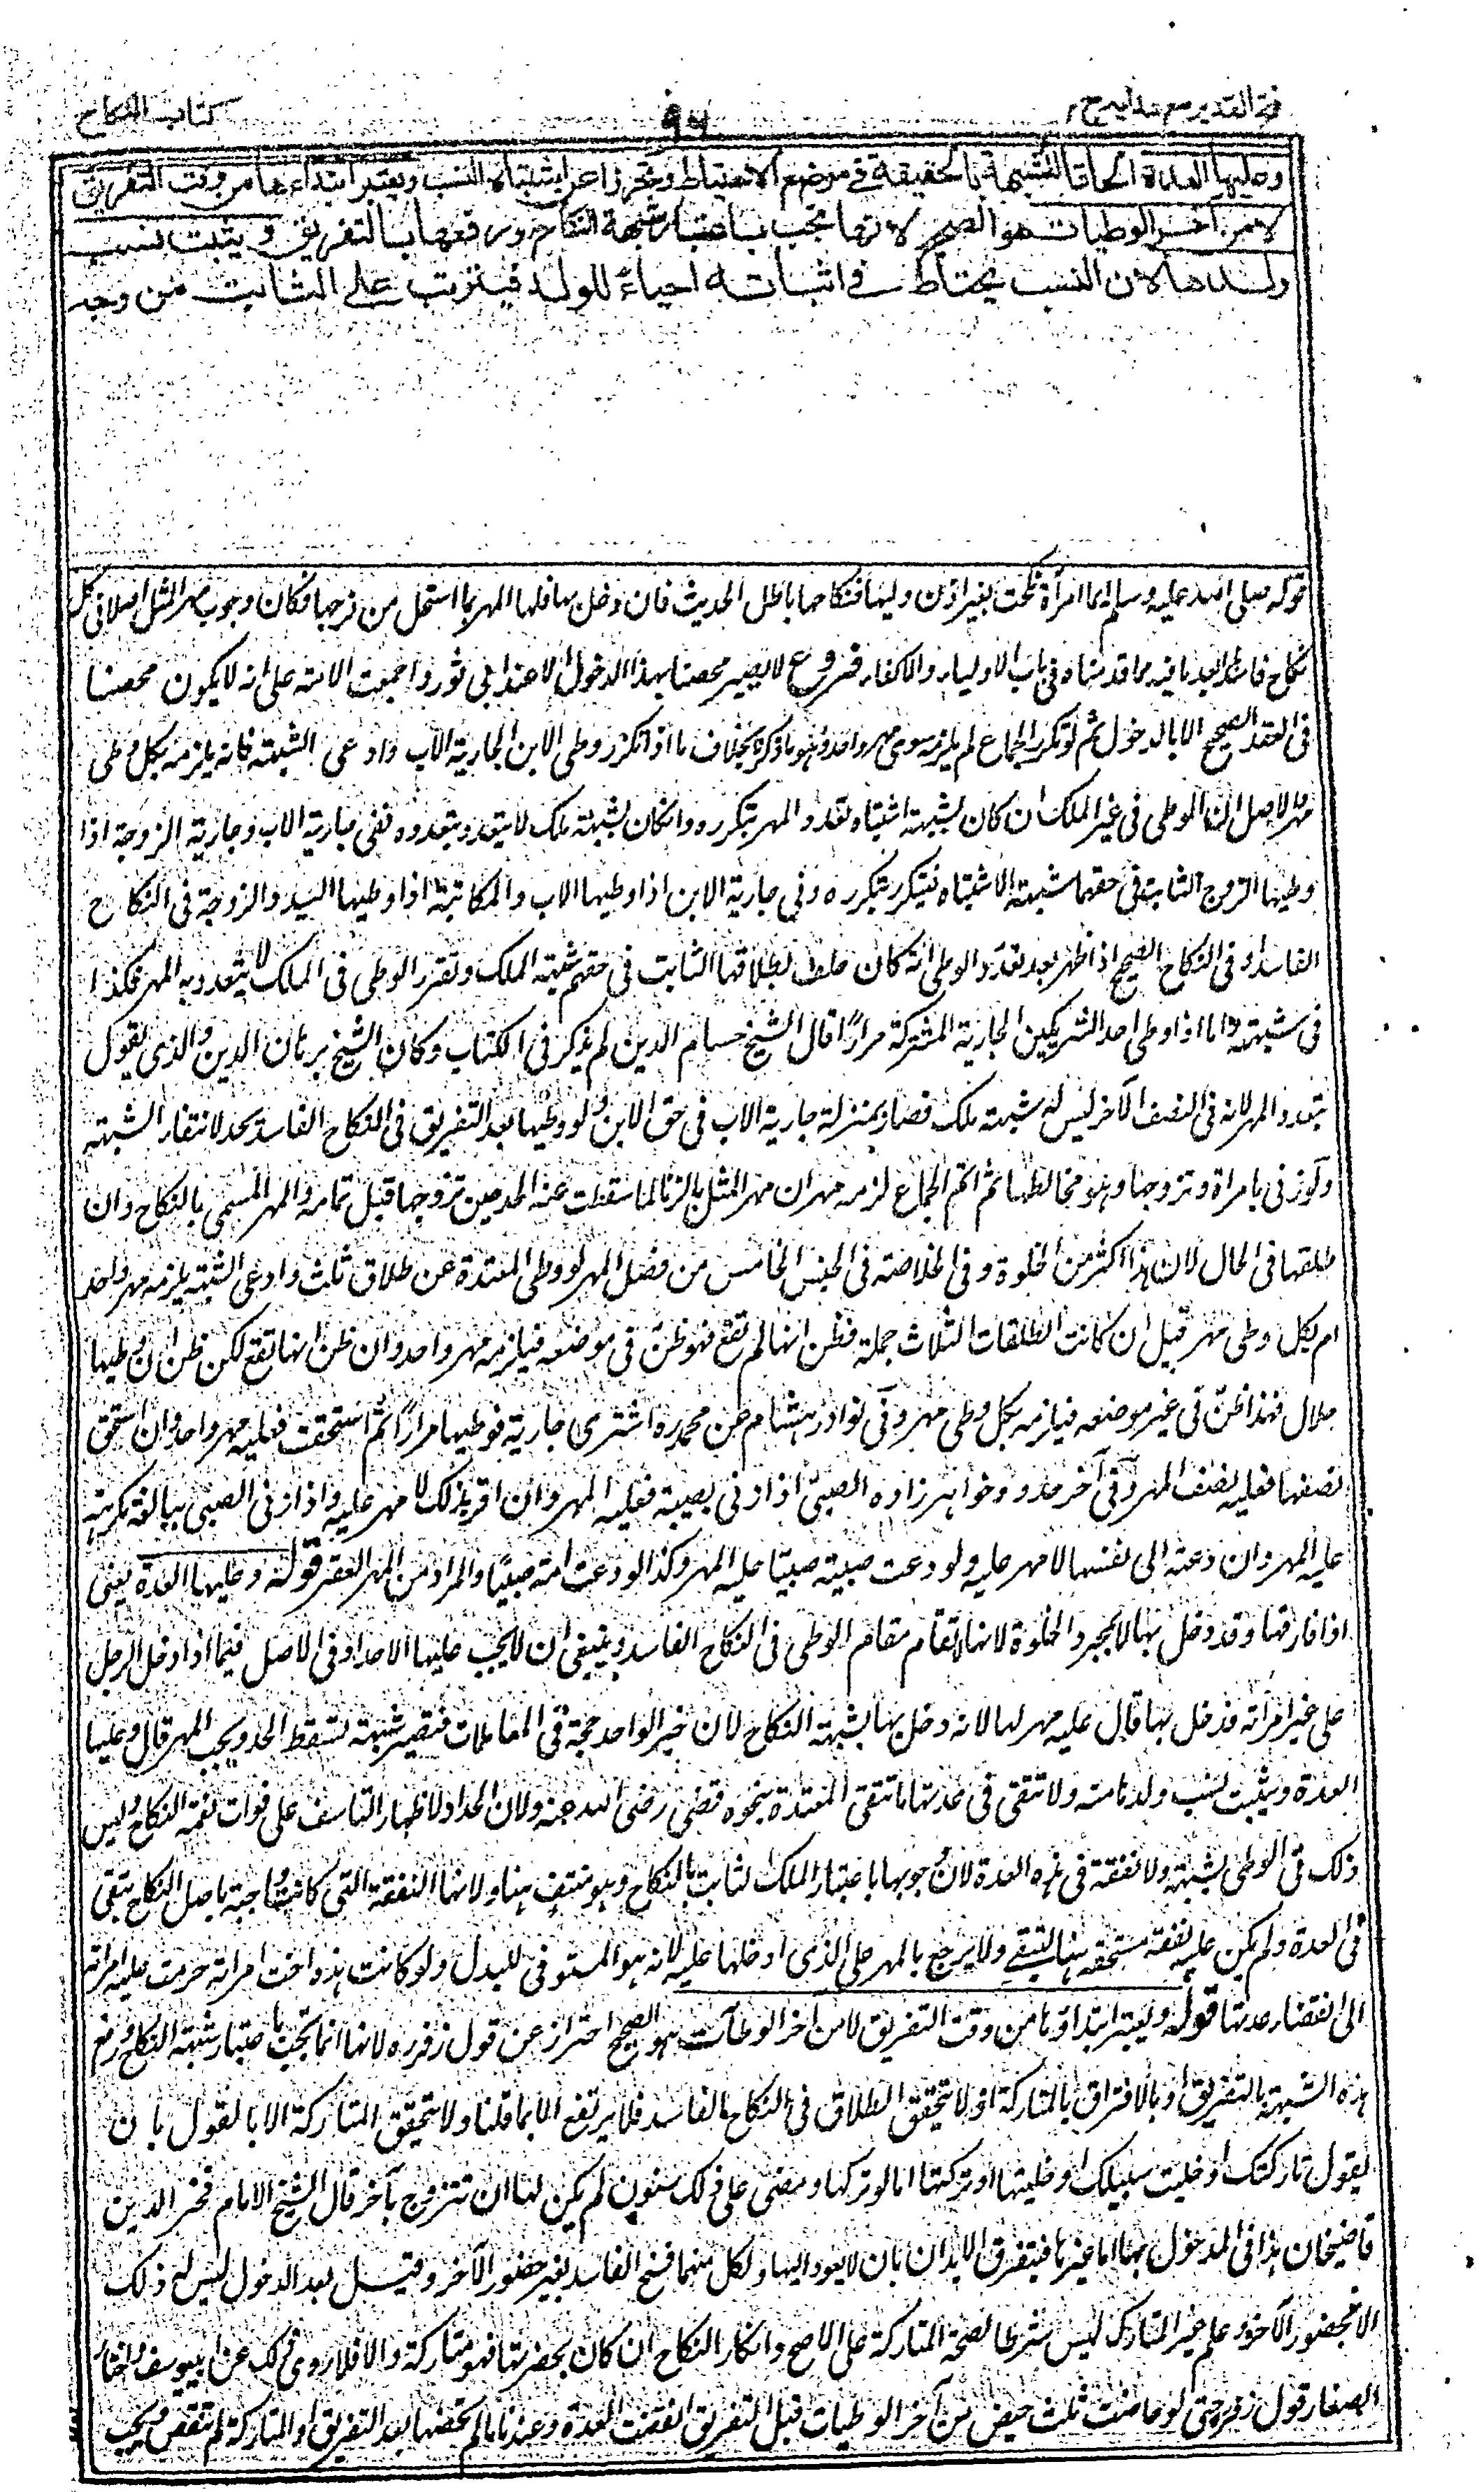 فتح القدير مع هدايه ج ٢
٩٦
كتاب النكاح
وعليها العدة الحاقا للشبهة بالحقيقة في موضع الاحتياط وتحرزا عن اشتباه النسب ويعتبر ابتداءها من وقت التفريق
لا من آخر الوطيات هو الصحيح لانها تجب باعتبار شبهة النكاح ورفعها بالتفريق ويثبت نسب
ولدها لان النسب يحتاط في اثباته احياءً للولد فيترتب على الثابت من وجه
قوله صلى الله عليه وسلم ايما امرأة نكحت بغير اذن وليها فنكاحها باطل الحديث فان دخل بها فلها المهر بما استحل من فرجها فكان وجوب مهر المثل اصلا في كل
نكاح فاسد بعد ما فيه مما قدمناه في باب الاولياء والاكفاء فروع لا يصير محصنا بهذا الدخول الا عند ابي ثور واجمعت الامة على انه لا يكون محصنا
في العقد الصحيح الا بالدخول ثم لو تكرر الجماع لم يلزمه سوى مهر واحد وهو ما ذكر بخلاف ما اذا تكرر وطى الابن الجارية الاب وادعى الشبهة فانه يلزمه بكل وطى
مهر والاصل ان الوطى في غير الملك ان كان بشبهة اشتباه تعدد المهر بتكرره وانكان بشبهة ملك لا يتعدد بتعدده ففي جارية الاب وجارية الزوجة اذا
وطيها الزوج الثابت في حقهما شبهة الاشتباه فيتكرر بتكرره وفي جارية الابن اذا وطيها الاب والمكاتبة اذا وطيها السيد والزوجة في النكاح
الفاسد او في النكاح الصحيح اذا ظهر بعد تعدد الوطى انه كان حلف بطلاقها الثابت في حقهم شبهة الملك وتقرر الوطى في الملك لا يتعدد به المهر فكذا
في شبهته واما اذا وطى احد الشريكين الجارية المشتركة مرارًا قال الشيخ حسام الدين لم يذكر في الكتاب وكان الشيخ برهان الدين والذي يقول
بتعدد المهر لانه في النصف الآخر ليس له شبهة ملك فصار بمنزلة جارية الاب في حق الابن ولو وطيها بعد التفريق في النكاح الفاسد يحد لانتفاء الشبهة
ولو زنى بامرأة وتزوجها وهو مخالطها ثم اتم الجماع لزمه مهران مهر المثل بالزنا لما سقطت عنه الحد حين تزوجها قبل تمامه والمهر المسمى بالنكاح وان
طلقها في الحال لان هذا اكثر من الخلوة وفي الخلاصة في الجنس الخامس من فصل المهر لو وطى المعتدة عن طلاق ثلث وادعى الشبهة يلزمه مهر واحد
ام بكل وطى مهر قيل ان كانت الطلقات الثلاث جملة فظن انها لم تقع فهو ظن في موضعه فيلزمه مهر واحد وان ظن انها تقع لكن ظن ان وطيها
حلال فهذا ظن في غير موضعه فيلزمه بكل وطى مهر وفي نوادر هشام عن محمد ره اشترى جارية فوطيها مرارًا ثم استحقت فعليه مهر واحد وان استحق
نصفها فعليه نصف المهر وفي آخر حدود خواهر زاده الصبي اذا زنى بصبية فعليه المهر وان اقر بذلك لا مهر عليه واذا زنى الصبي ببالغة مكرهة
عليه المهر وان دعته الى نفسها لا مهر عليه ولو دعت صبية صبيًا عليه المهر وكذا لو دعت امة صبيًا والمراد من المهر العقر قوله وعليها العدة يعنى
اذا فارقها وقد دخل بها لا بمجرد الخلوة لانها لا تقام مقام الوطى في النكاح الفاسد وينبغي ان لا يجب عليها الاحداد وفي الاصل فيما اذا دخل الرجل
على غير امرأته فدخل بها قال عليه مهر لها لانه دخل بها بشبهة النكاح لان خبر الواحد حجة في المعاملات فتصير شبهة تسقط الحد ويجب المهر قال وعليها
العدة ويثبت نسب ولدها منه ولا تتقى في عدتها ما تتقى المعتدة بنحوه قضى رضى الله عنه ولان الحداد لاظهار التأسف على فوات نعمة النكاح وليس
ذلك في الوطى بشبهة ولا نفقة في هذه العدة لان وجوبها باعتبار الملك الثابت بالنكاح وهو منتف هنا ولانها النفقة التي كانت واجبة باصل النكاح تبقى
في العدة ولم يكن عليه نفقة مستحقة هنا لتبقى ولا يرجع بالمهر على الذي ادخلها عليه لانه هو المستوفى للبدل ولو كانت هذه اخت امرأته حرمت عليه امرأته
الى انقضاء عدتها قوله ويعتبر ابتداؤها من وقت التفريق لا من آخر الوطآت هو الصحيح احتراز عن قول زفر ره لانها انما تجب باعتبار شبهة النكاح ورفع
هذه الشبهة بالتفريق او بالافتراق بالمتاركة اذ لا يتحقق الطلاق في النكاح الفاسد فلا يرتفع الا بما قلنا ولا تتحقق المتاركة الا بالقول بان
يقول تاركتك او خليت سبيلك او خليتها او تركتها اما لو تركها ومضى على ذلك سنون لم يكن لها ان تتزوج بآخر قال الشيخ الامام فخر الدين
قاضيخان هذا في المدخول بها اما غيرها فيتفرق الابدان بان لا يعود اليها ولكل منهما فسخ الفاسد بغير حضور الآخر وقيل بعد الدخول ليس له ذلك
الا بحضور الآخر وعلم غير المتارك ليس شرطا لصحة المتاركة على الاصح وانكار النكاح ان كان بحضرتها فهو متاركة والا فلا روى ذلك عن ابي يوسف واختار
الصفار قول زفر حتى لو حاضت ثلث حيض من آخر الوطيات قبل التفريق انقضت العدة وعندنا ما لم تحضها بعد التفريق او المتاركة لم تنقض ويجب